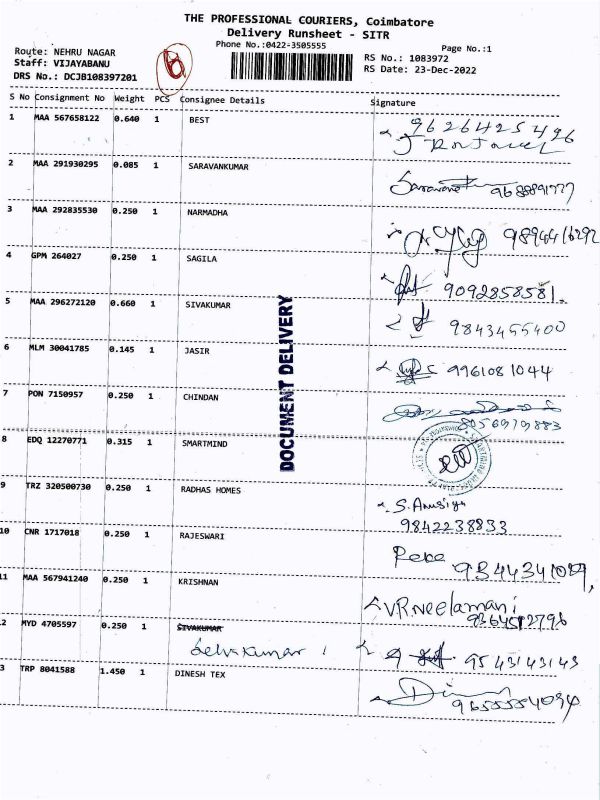 THE PROFESSIONAL COURIERS, Coimbatore
Delivery Runsheet - SITR
Phone No.:0422-3505555
Page No.:1
Route: NEHRU NAGAR
Staff: VIJAYABANU
DRS No.: DCJB108397201
6
RS No.: 1083972
RS Date: 23-Dec-2022
S No Consignment No Weight PCS Consignee Details Signature
1 MAA 567658122 0.640 1 BEST 9626425426
2 MAA 291930295 0.085 1 SARAVANKUMAR
3 MAA 292835530 0.250 1 NARMADHA 9894416292
4 GPM 264027 0.250 1 SAGILA 9092858581
5 MAA 296272120 0.660 1 SIVAKUMAR 9843455400
6 MLM 30041785 0.145 1 JASIR 9961081044
7 PON 7150957 0.250 1 CHINDAN 8056979883
8 EDQ 12270771 0.315 1 SMARTMIND
9 TRZ 320500730 0.250 1 RADHAS HOMES S. Anusiya
9842238833
10 CNR 1717018 0.250 1 RAJESWARI
11 MAA 567941240 0.250 1 KRISHNAN VR Neelamani
9364512796
2 MYD 4705597 0.250 1 SIVAKUMAR
Selvakumar 9543143143
3 TRP 8041588 1.450 1 DINESH TEX
DOCUMENT DELIVERY